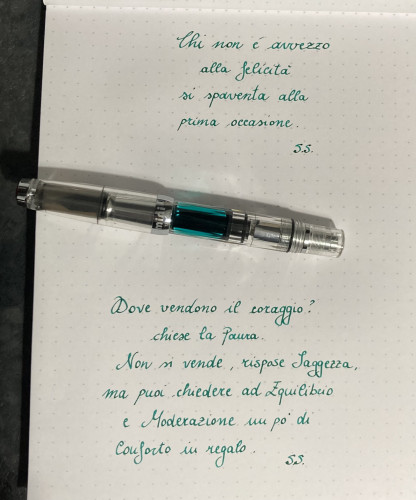 Chi non é avvezzo
alla felicità
si spaventa alla
prima occasione.
S.S.
Dove vendono il coraggio?
chiese la Paura.
Non si vende, rispose Saggezza,
ma puoi chiedere ad Equilibrio
e Moderazione un po' di
Conforto in regalo.
S.S.